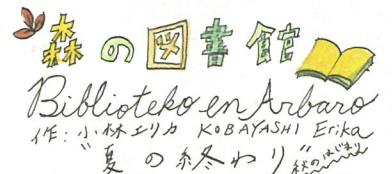 森の図書館
Biblioteko en Arbaro
作：小林エリカ KOBAYASHI Erika
"夏の終わり" 秋のはじまり